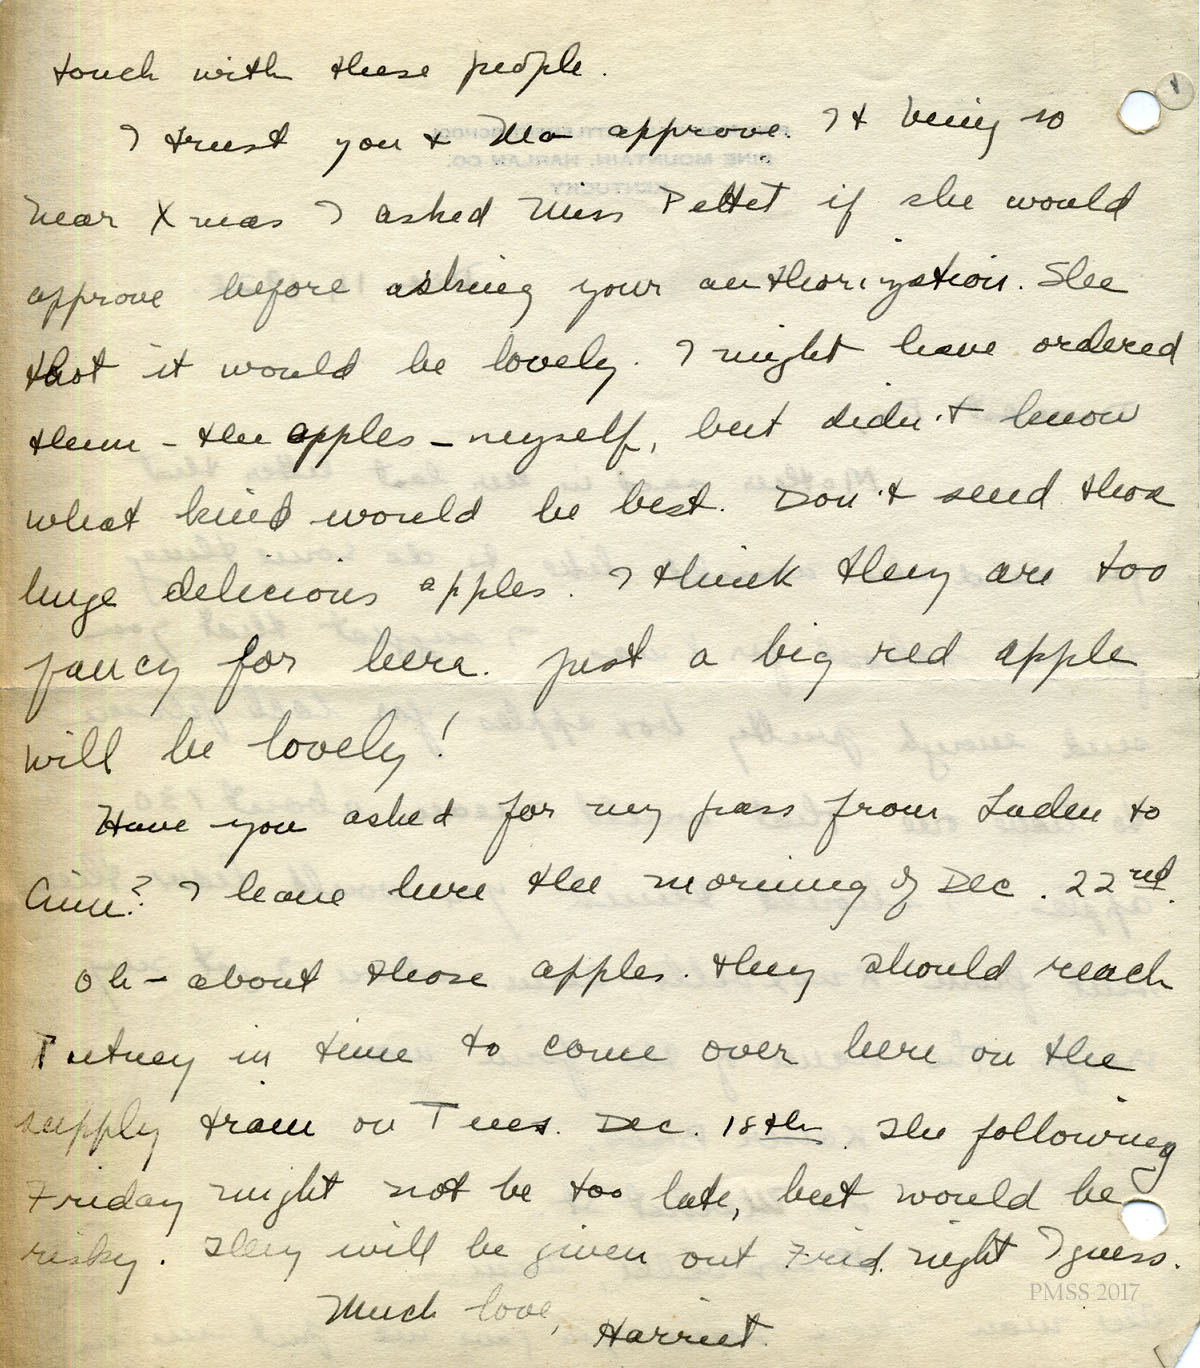 touch with these people.
I trust you & Mo approve. It being so
near Xmas I asked Miss Pettet if she would
approve before asking your authorization. She
that it would be lovely. I might have ordered
them - the apples - myself, but didn't know
what kind would be best. Don't send thos
huge delicious apples. I think they are too
fancy for here. just a big red apple
will be lovely!
Have you asked for my pass from Laden to
Cinn? I leave here the morning of Dec. 22nd.
Oh - about those apples. they should reach
Putney in time to come over here on the
supply tram on Tues. Dec. 18th. The following
Friday might not be too late, but would be
risky. They will be given out Frid. night I guess.
Much love,
Harriet.
PMSS 2017